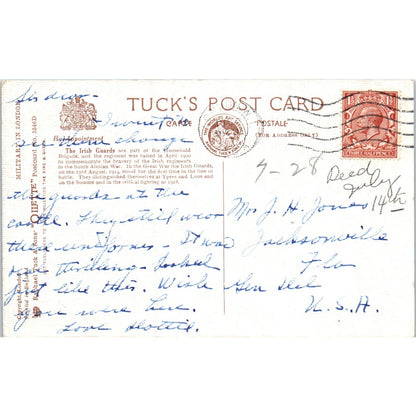 TUCK'S POST CARD
CARTE POSTALE
(FOR ADDRESS ONLY)
By Appointment
The Irish Guards are part of the Household
Brigade, and the regiment was raised in April 1900
to commemorate the bravery of the Irish regiments
in the South African War. In the Great War the Irish Guards,
on the 23rd August, 1914, stood for the first time in the line of
battle. They distinguished themselves at Ypres and Loos and
on the Somme and in the critical fighting of 1918.
MILITARY IN LONDON
Raphael Tuck & Sons' "OILETTE" Postcard No.
Sis dear -
I went to
see them change
the guards at the
castle. They still wear
their uniforms - It was
very thrilling - Looked
just like this. Wish
you were here.
Love Lottie.
7-28
Recd
July
14th
Mrs J. H. Jones
Jacksonville
Fla
Gen Del
U.S.A.
THREE HALFPENCE